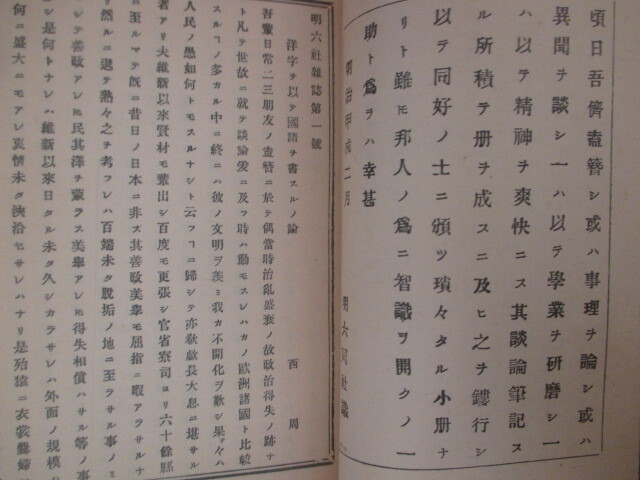 頃日吾儕盍簪シ或ハ事理ヲ論シ或ハ
異聞ヲ談シ一ハ以テ學業ヲ研磨シ一
ハ以テ精神ヲ爽快ニス其談論筆記ス
ル所積テ册ヲ成スニ及ヒ之ヲ鏤行シ
以テ同好ノ士ニ頒ツ瑣々タル小册ナ
リト雖モ邦人ノ爲ニ智識ヲ開クノ一
助ト爲ラハ幸甚
明治甲戌二月 明六同社識
明六社雜誌第一號
洋字ヲ以テ國語ヲ書スルノ論 西周
吾輩日常二三朋友ノ盍簪ニ於テ偶當時治亂盛衰ノ故政治得失ノ跡ナ
ト凡テ世故ニ就テ談論爰ニ及フ時ハ動モスレハカノ歐洲諸國ト比較
スルコノ多カル中ニ終ニハ彼ノ文明ヲ羨ミ我カ不開化ヲ歎シ果々ハ
人民ノ愚如何トモスルナシト云フコニ歸シテ亦欷歔長大息ニ堪サル
者アリ夫維新以來賢材モ輩出シ百度モ更張シ官省寮司ヨリ六十餘縣
ニ至ルマテ既ニ昔日ノ日本ニ非ス其善政美擧モ屈指ニ暇アラサルナ
リ然ルニ退テ熟々之ヲ考フレハ百端未タ脱垢ノ地ニ至ラサル事ノミ
シテ善政アレ𪜈民其澤ヲ蒙ラス美擧アレ𪜈得失相償ハサル等ノ事
是何トナレハ維新以來日タル未タ久シカラサレハ外面ノ規模ハ
何ニ盛大ニモアレ衷情未タ浹洽セサレハナリ是殆猿ニ衣裳